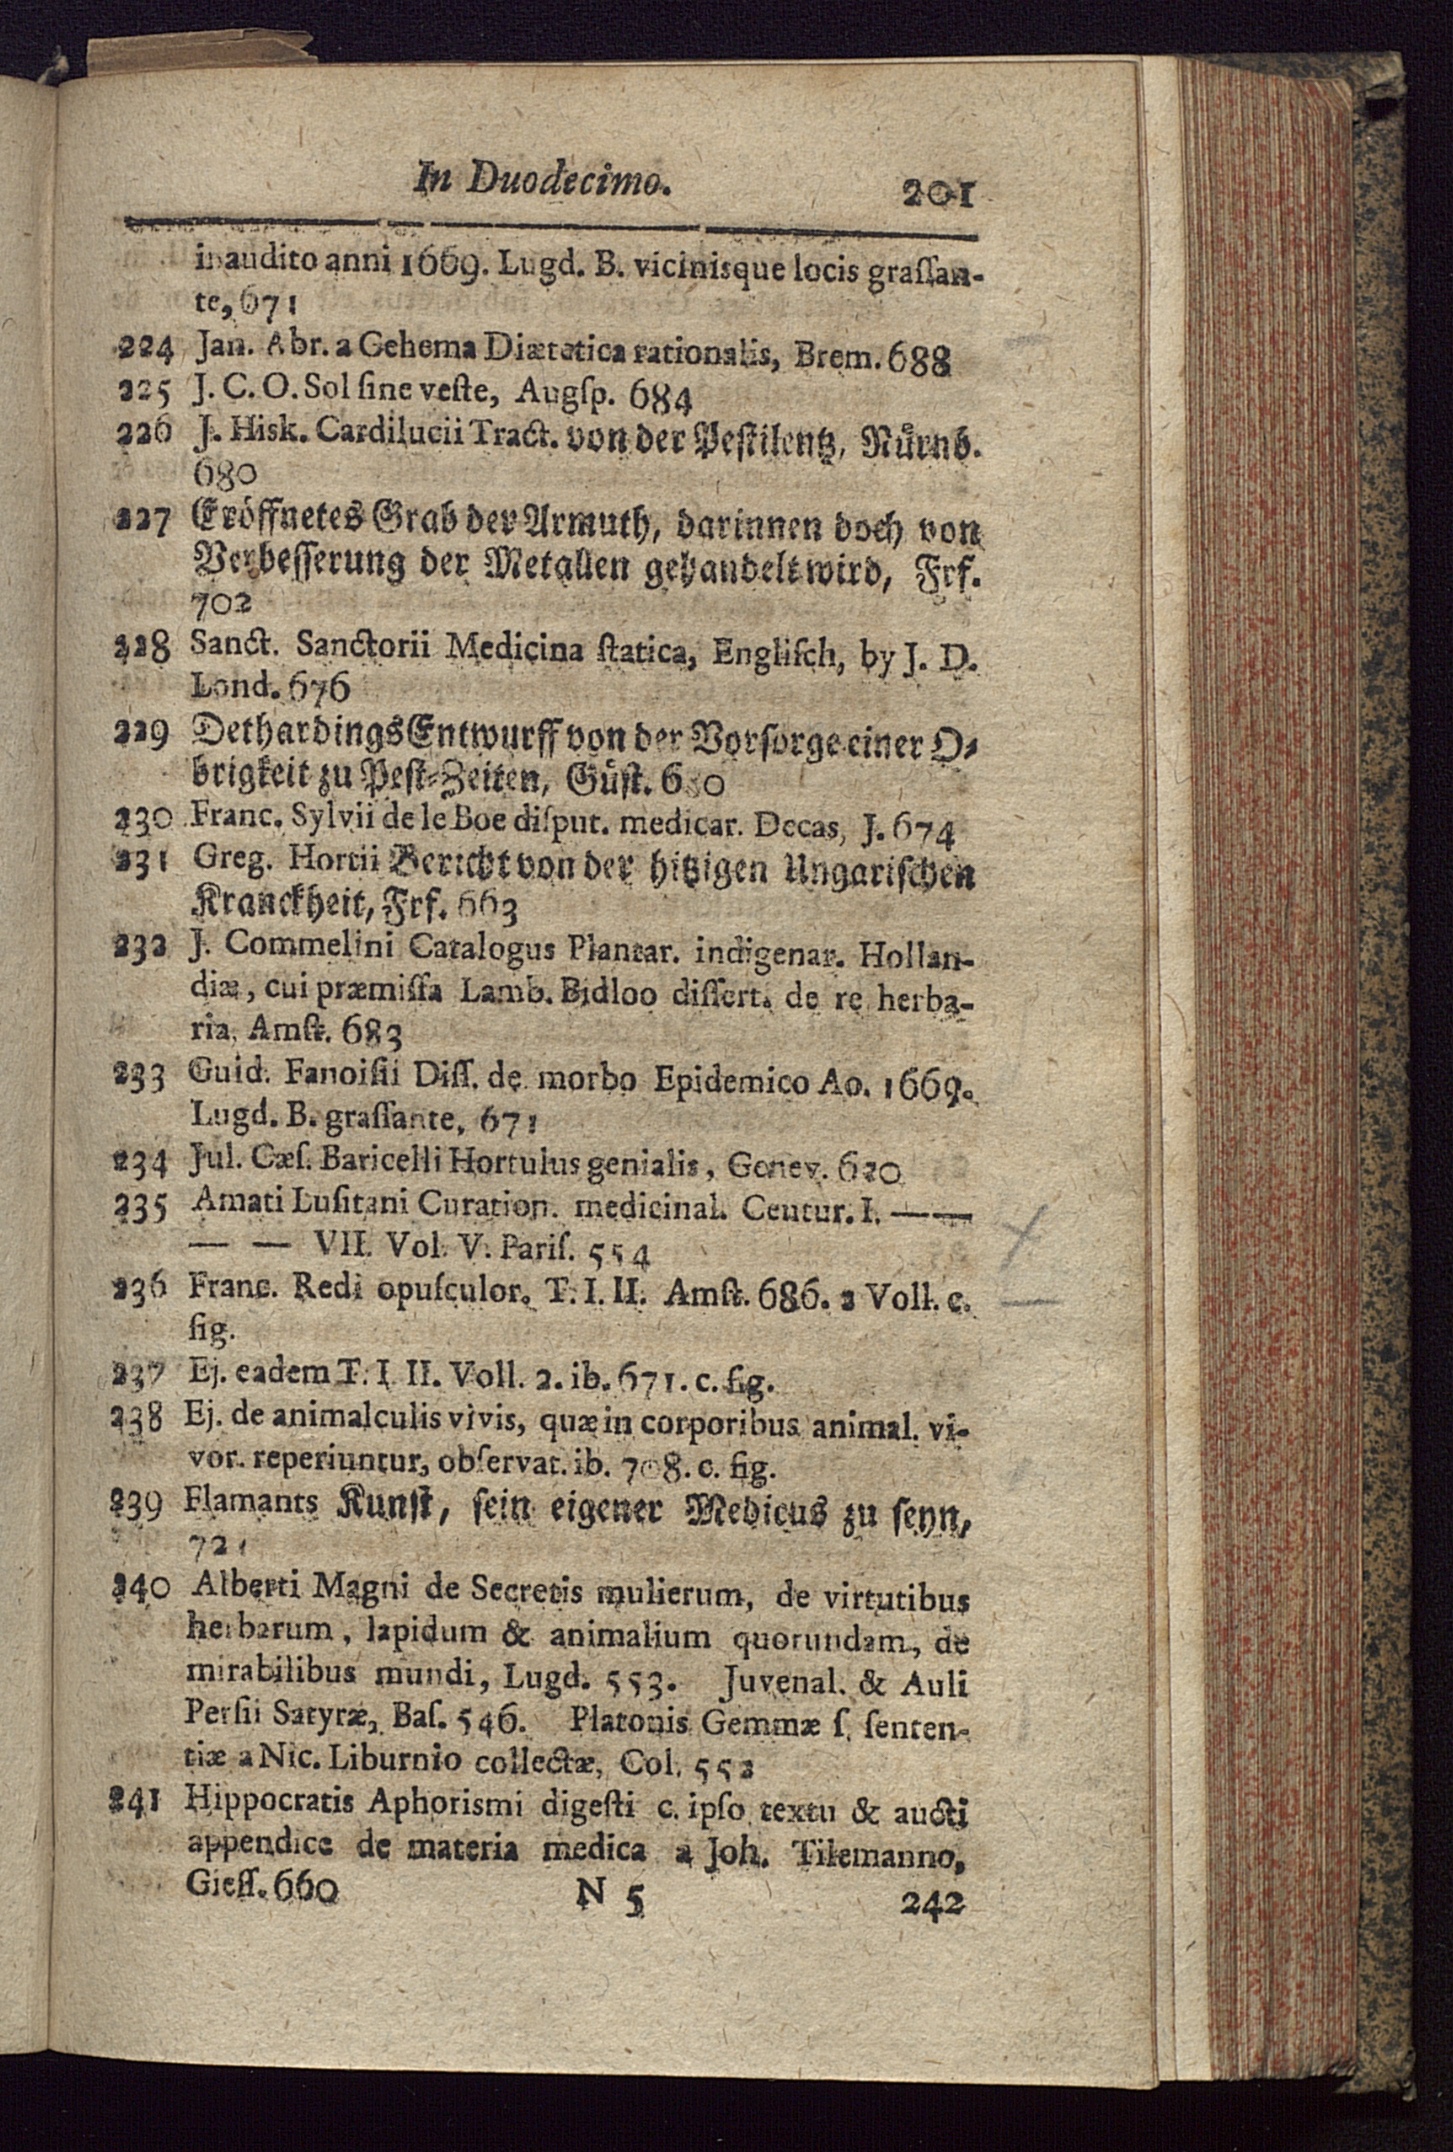 In Duodecimo. 201
inaudito anni 1669. Lugd. B. vicinisque locis graſſan-
te, 671
224 Jan. Abr. a Gehema Diætetica rationalis, Brem. 688
225 J. C. O. Sol ſine veſte, Augſp. 684
226 J. Hisk. Cardilucii Tract. von der Peſtilentz, Nürnb.
680
227 Eröffnetes Grab der Armuth, darinnen doch von
Verbeſſerung der Metallen gehandelt wird, Frf.
702
228 Sanct. Sanctorii Medicina ſtatica, Engliſch, by J. D.
Lond. 676
229 Dethardings Entwurff von der Vorſorge einer O-
brigkeit zu Peſt-Zeiten, Güſt. 680
230 Franc. Sylvii de le Boe diſput. medicar. Decas, J. 674
231 Greg. Hortii Bericht von der hitzigen Ungariſchen
Kranckheit, Frf. 663
232 J. Commelini Catalogus Plantar. indigenar. Hollan-
diæ, cui præmiſſa Lamb. Bidloo diſſert. de re herba-
ria, Amſt. 683
233 Guid. Fanoiſii Diſſ. de morbo Epidemico Ao. 1669.
Lugd. B. graſſante, 671
234 Jul. Cæſ. Baricelli Hortulus genialis, Genev. 620
235 Amati Luſitani Curation. medicinal. Centur. I. — —
— — VII. Vol. V. Pariſ. 554
236 Franc. Redi opuſculor. T. I. II. Amſt. 686. 2 Voll. c.
fig.
237 Ej. eadem T. I II. Voll. 2. ib. 671. c. fig.
238 Ej. de animalculis vivis, quæ in corporibus animal. vi-
vor. reperiuntur, obſervat. ib. 708. c. fig.
239 Flamants Kunſt, ſein eigener Medicus zu ſeyn,
721
240 Alberti Magni de Secretis mulierum, de virtutibus
herbarum, lapidum & animalium quorundam, de
mirabilibus mundi, Lugd. 553. Juvenal. & Auli
Perſii Satyræ, Baſ. 546. Platonis Gemmæ ſ. ſenten-
tiæ a Nic. Liburnio collectæ, Col. 552
241 Hippocratis Aphorismi digeſti c. ipſo textu & aucti
appendice de materia medica a Joh. Tilemanno,
Gieſſ. 660 N 5 242